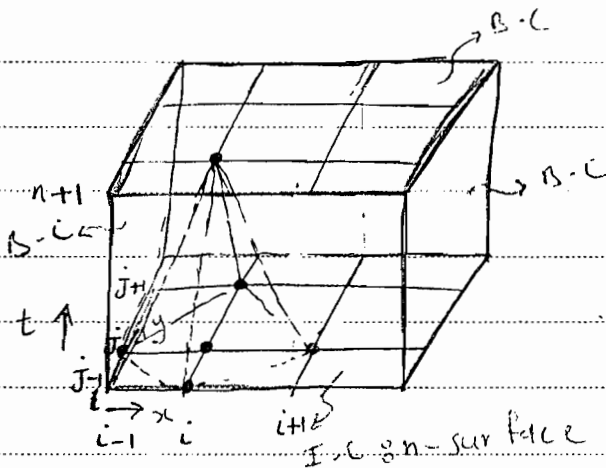 B.C
n+1
B.C
B.C
j+1
t
j
y
j-1
x
i-1
i
i+1
I.C on-surface